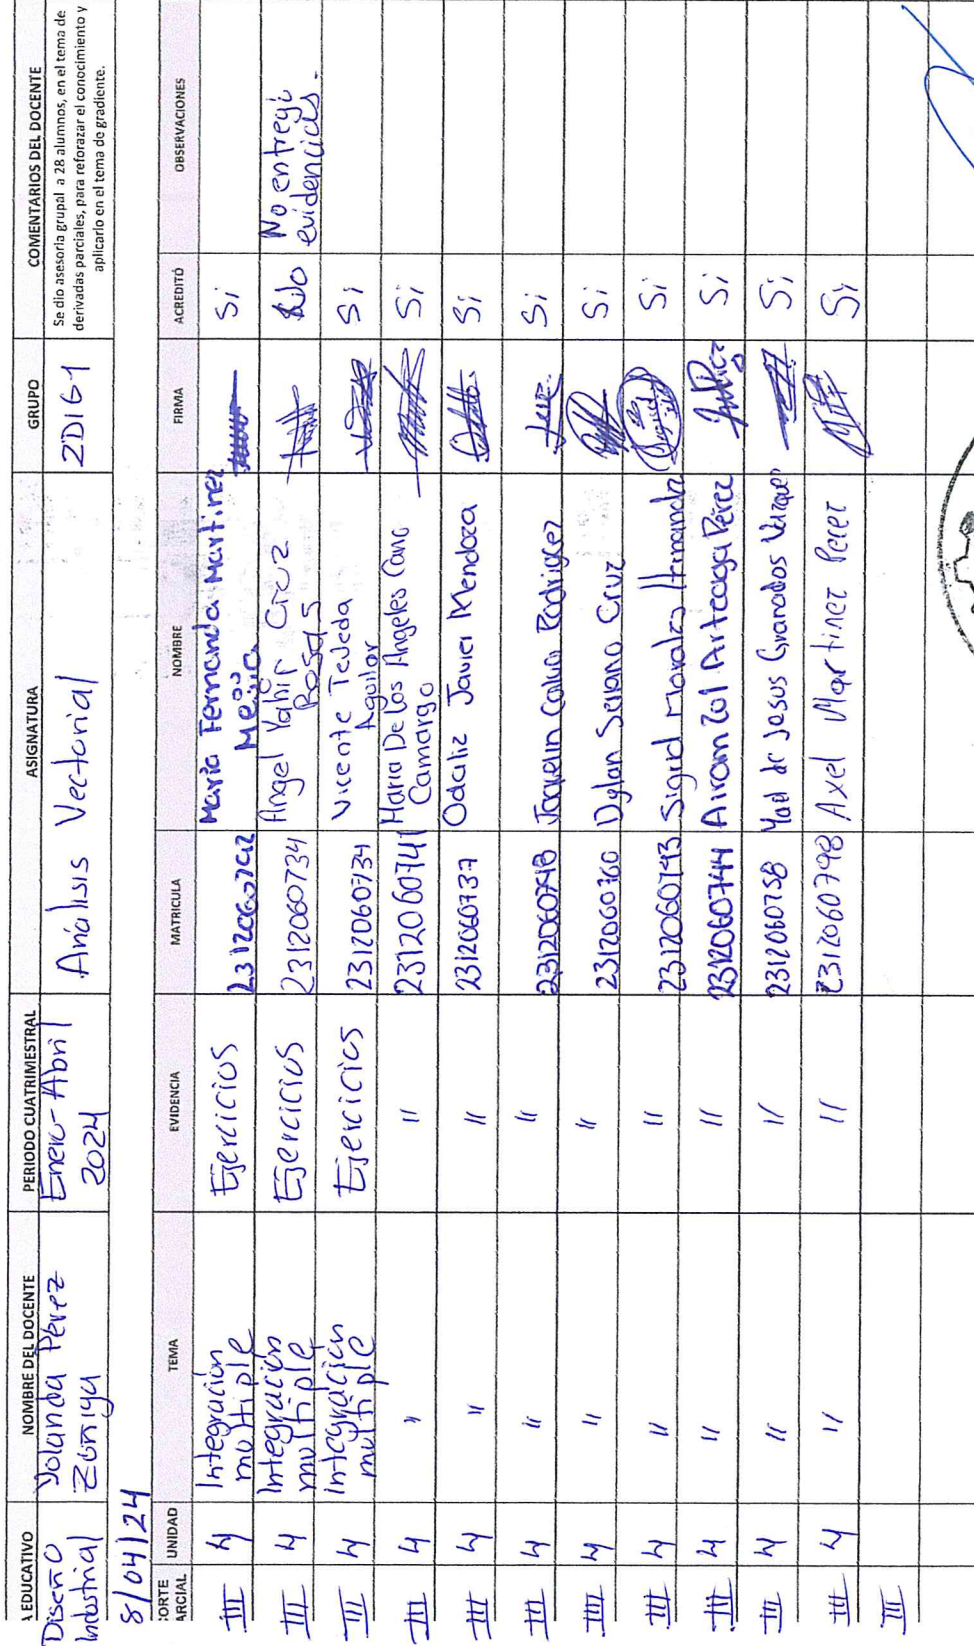 A EDUCATIVO NOMBRE DEL DOCENTE PERIODO CUATRIMESTRAL ASIGNATURA GRUPO COMENTARIOS DEL DOCENTE
Diseño Yolanda Pérez Enero-Abril Análisis Vectorial 2DIG1 Se dio asesoría grupal a 28 alumnos, en el tema de
Industrial Zúñiga 2024 derivadas parciales, para reforazar el conocimiento y
aplicarlo en el tema de gradiente.
8/04/24
ORTE
ARCIAL UNIDAD TEMA EVIDENCIA MATRICULA NOMBRE FIRMA ACREDITÓ OBSERVACIONES
III 4 Integración Ejercicios Maria Fernanda Martinez Si
multiple Mejia
III 4 Integración Ejercicios 2312060734 Angel Yahir Cruz No No entregó
multiple Rosas evidencias.
III 4 Integración Ejercicios 2312060734 Vicente Tejeda Si
multiple Aguilar
III 4 " " 2312060741 Maria De los Angeles Cano Si
Camargo
III 4 " " 2312060737 Odaliz Javier Mendoza Si
III 4 " " Joaquin Calva Rodriguez Si
III 4 " " 2312060760 Dylan Serrano Cruz Si
III 4 " " 2312060743 Sigrid Morales Hernandez Si
III 4 " " 2312060744 Airam Zol Arteaga Pérez Si
III 4 " " 2312060758 Yael de Jesus Granados Si
III 4 " " 2312060798 Axel Martinez Perez Si
III